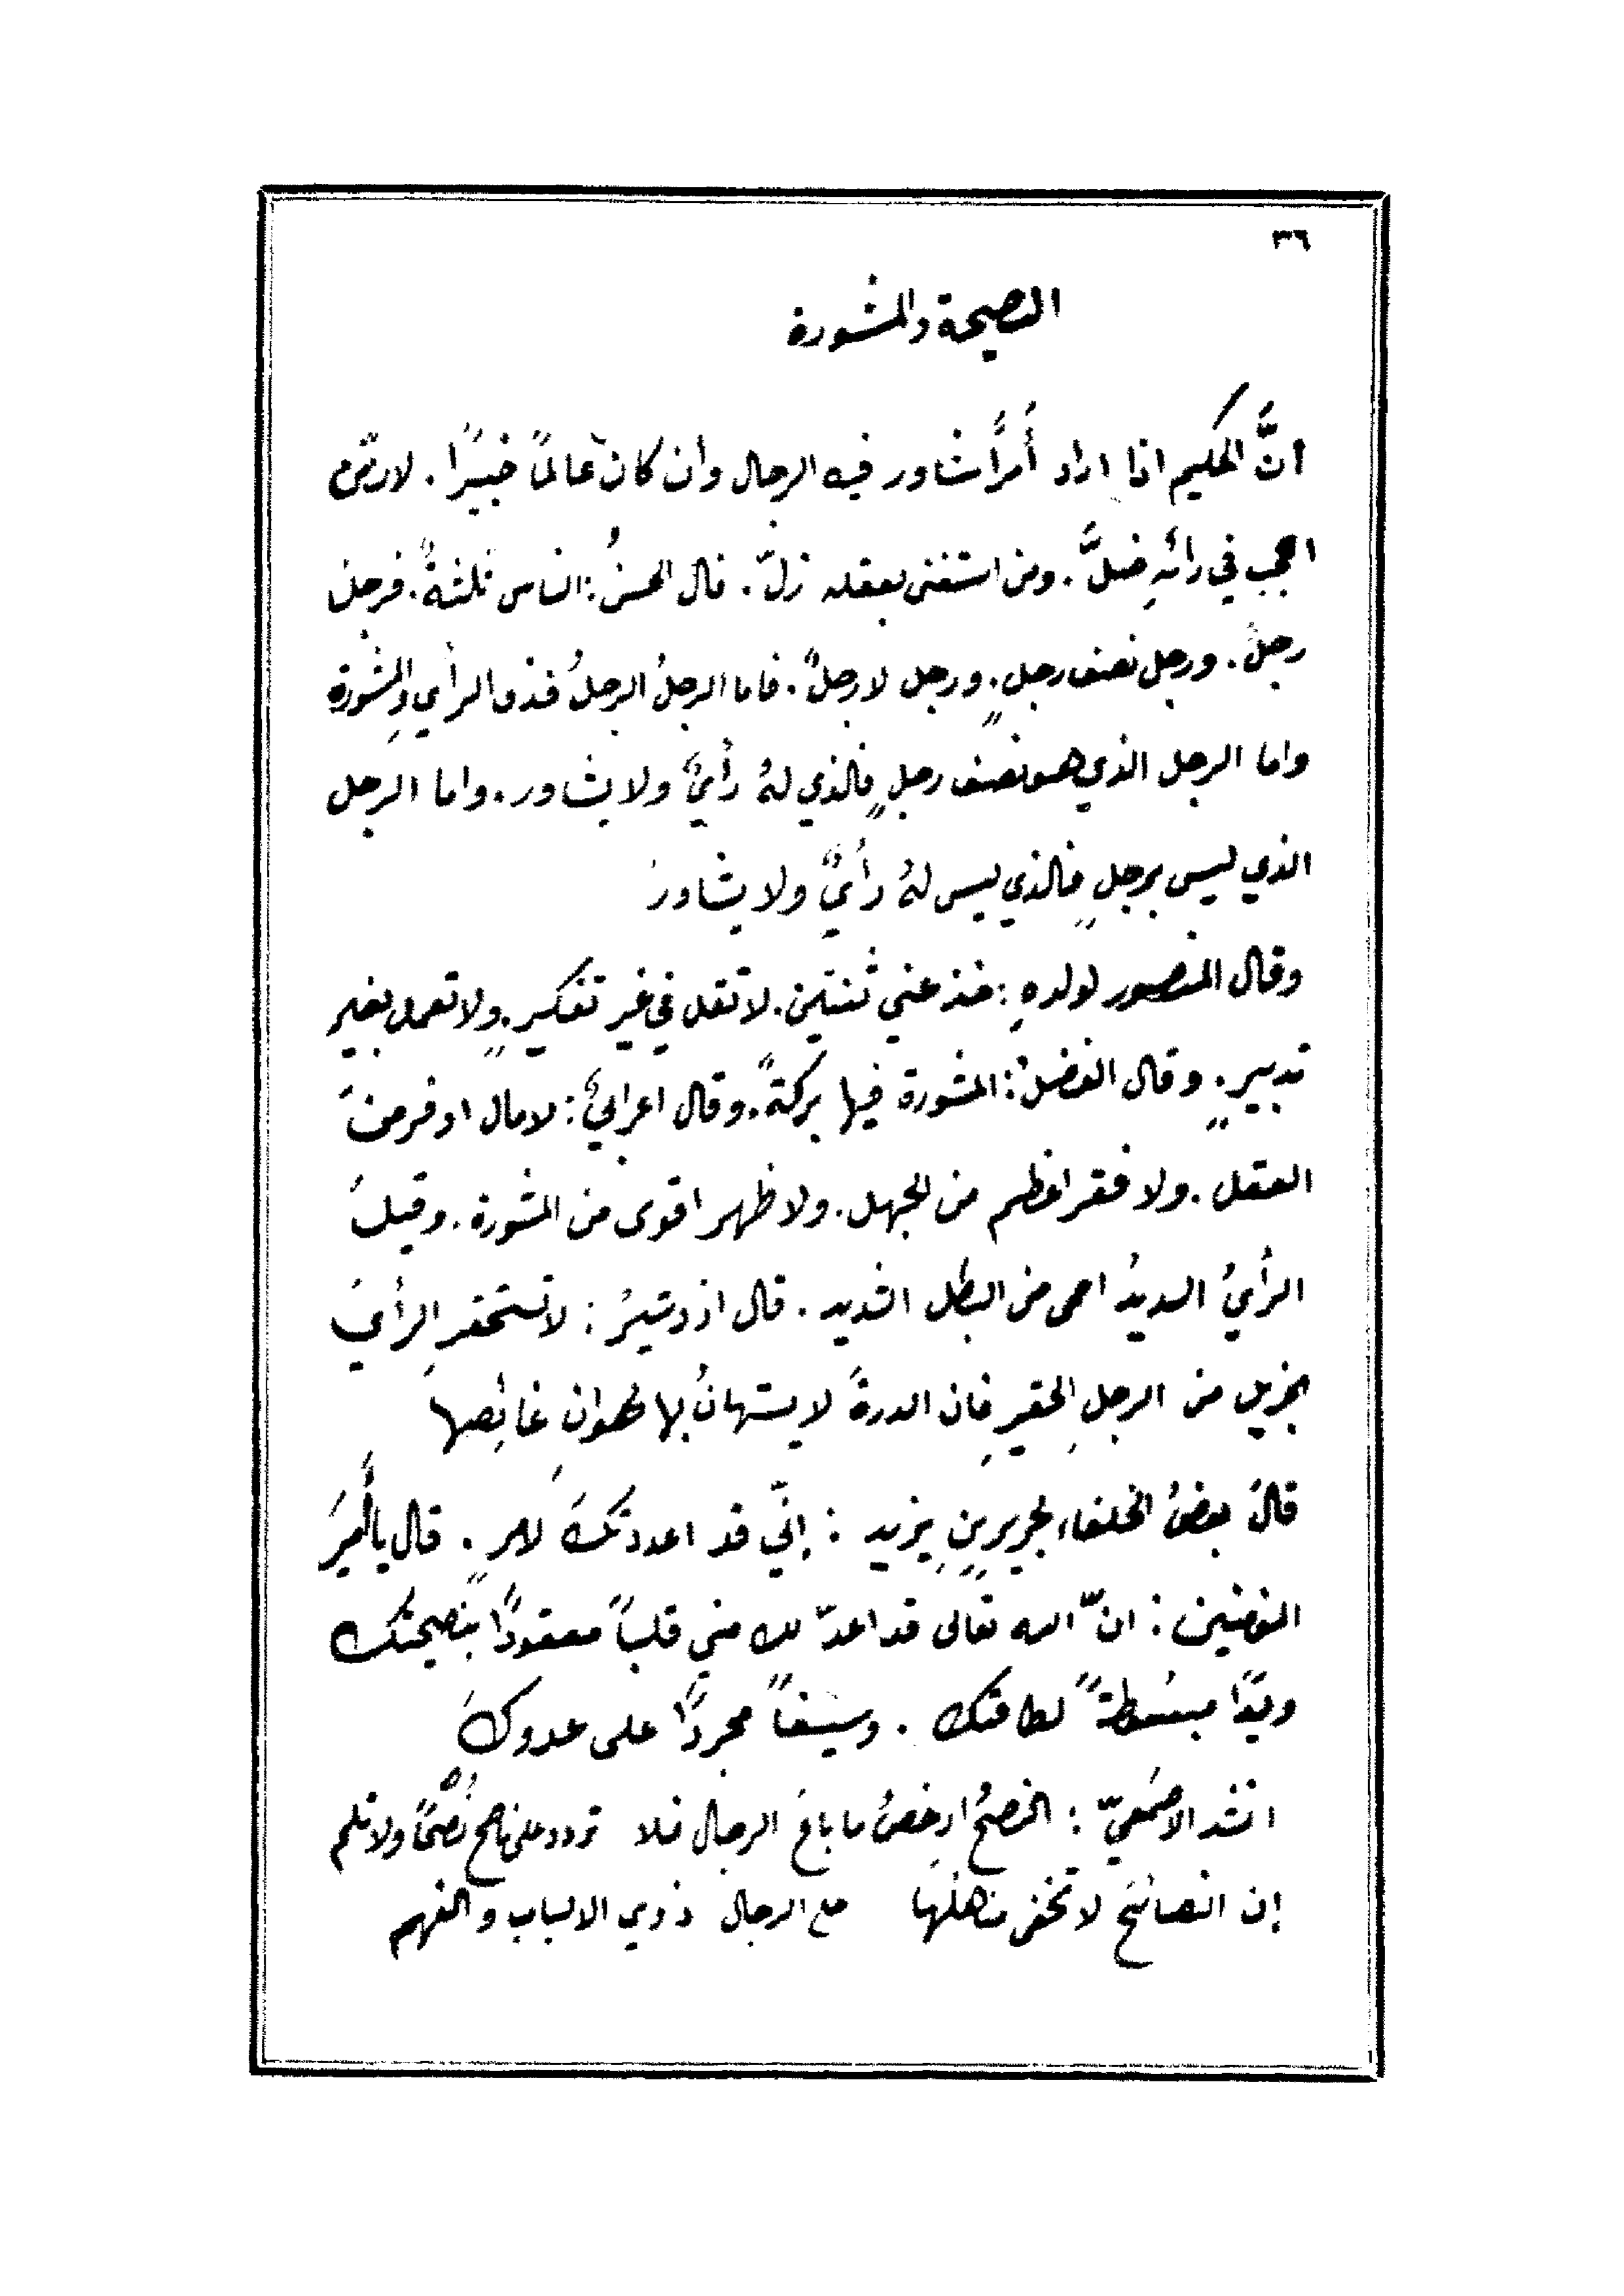 ٣٦
النصيحة والمشورة
انَّ الحكيم اذا اراد أَمرًا شاور فيه الرجال وان كان عالمًا خبيرًا . لان من
اعجب في رائهِ ضلَّ . ومن استغنى بعقله زلّ . قال الحسنُ : الناس ثلثةٌ . فرجل
رجلٌ . ورجل نصف رجلٍ . ورجل لا رجلٌ . فاما الرجلُ الرجلُ فذو الرأي والمشورةِ
واما الرجل الذي هو نصف رجلٍ فالذي لهُ رأيٌ ولا يشاور . واما الرجل
الذي ليس برجلٍ فالذي ليس لهُ رأيٌ ولا يشاورُ
وقال المنصور لولدهِ : خذ عني ثنتين . لا تقل في غير تفكيرٍ . ولا تعمل بغير
تدبيرٍ . وقال الفضلُ : المشورة فيها بركةٌ . وقال اعرابيٌ : لا مال اوفر من
العقل . ولا فقر اعظم من الجهل . ولا ظهر اقوى من المشورة . وقيل
الرأيُ السديدُ احمى من البطل الشديد . قال ازدشيرُ : لا تستحقرِ الرأيَ
الجزيل من الرجلِ الحقيرِ فان الدرةَ لا يستهانُ بها لهوانِ غائصها
قال بعضُ الخلفاء لجريرِ بنِ يزيد : إنّي قد اعددتكَ لامرٍ . قال يا أَميرَ
المؤمنين : انّ الله تعالى قد اعدّ لك مني قلباً معقودًا بنصيحتك
ويدًا مبسوطةً لطاعتك . وسيفاً مجردًا على عدوكَ
انشد الاصمعيّ : النصحُ ارخصُ ما باعَ الرجال فلا تردد على ناصح نُصْحًا ولا تلم
إن النصائحَ لا تخفى مناهلُها مع الرجال ذوي الالباب والفهم